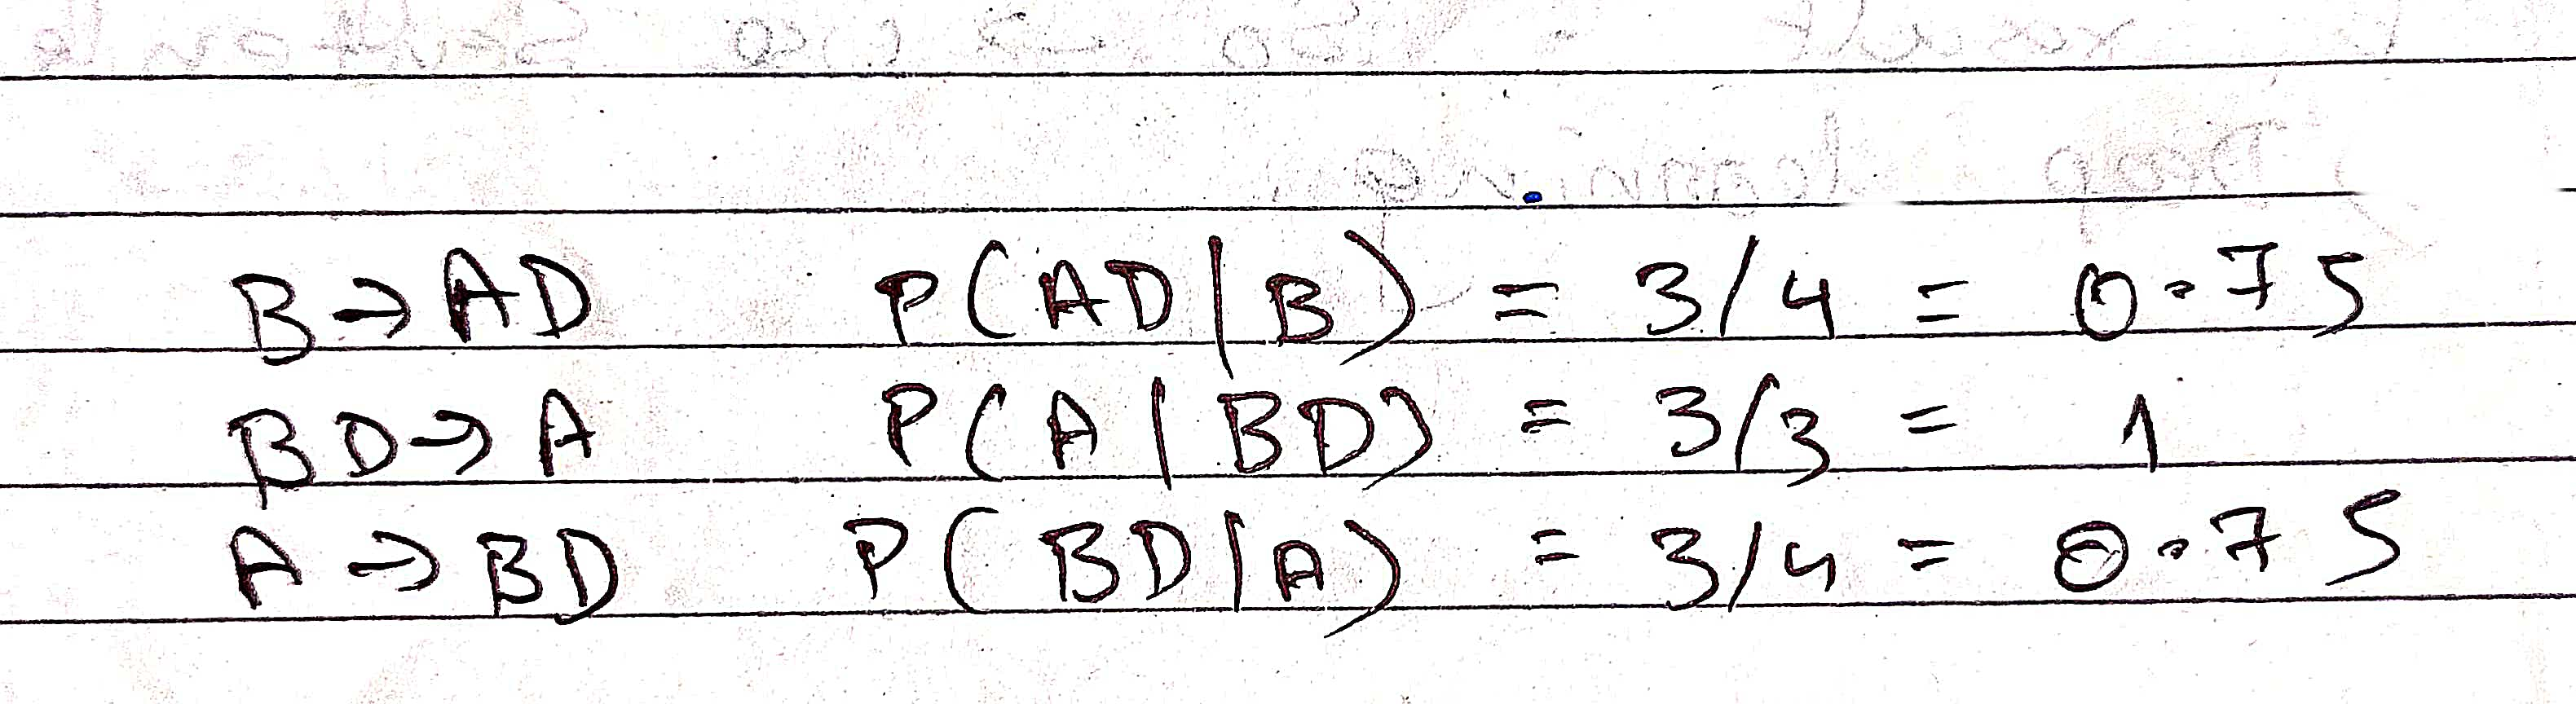 B → AD P(AD|B) = 3/4 = 0.75
BD → A P(A|BD) = 3/3 = 1
A → BD P(BD|A) = 3/4 = 0.75